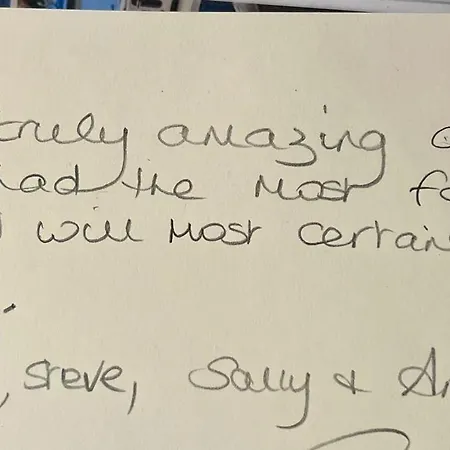 truly amazing
had the most
I will most certain
, Steve, Sally &